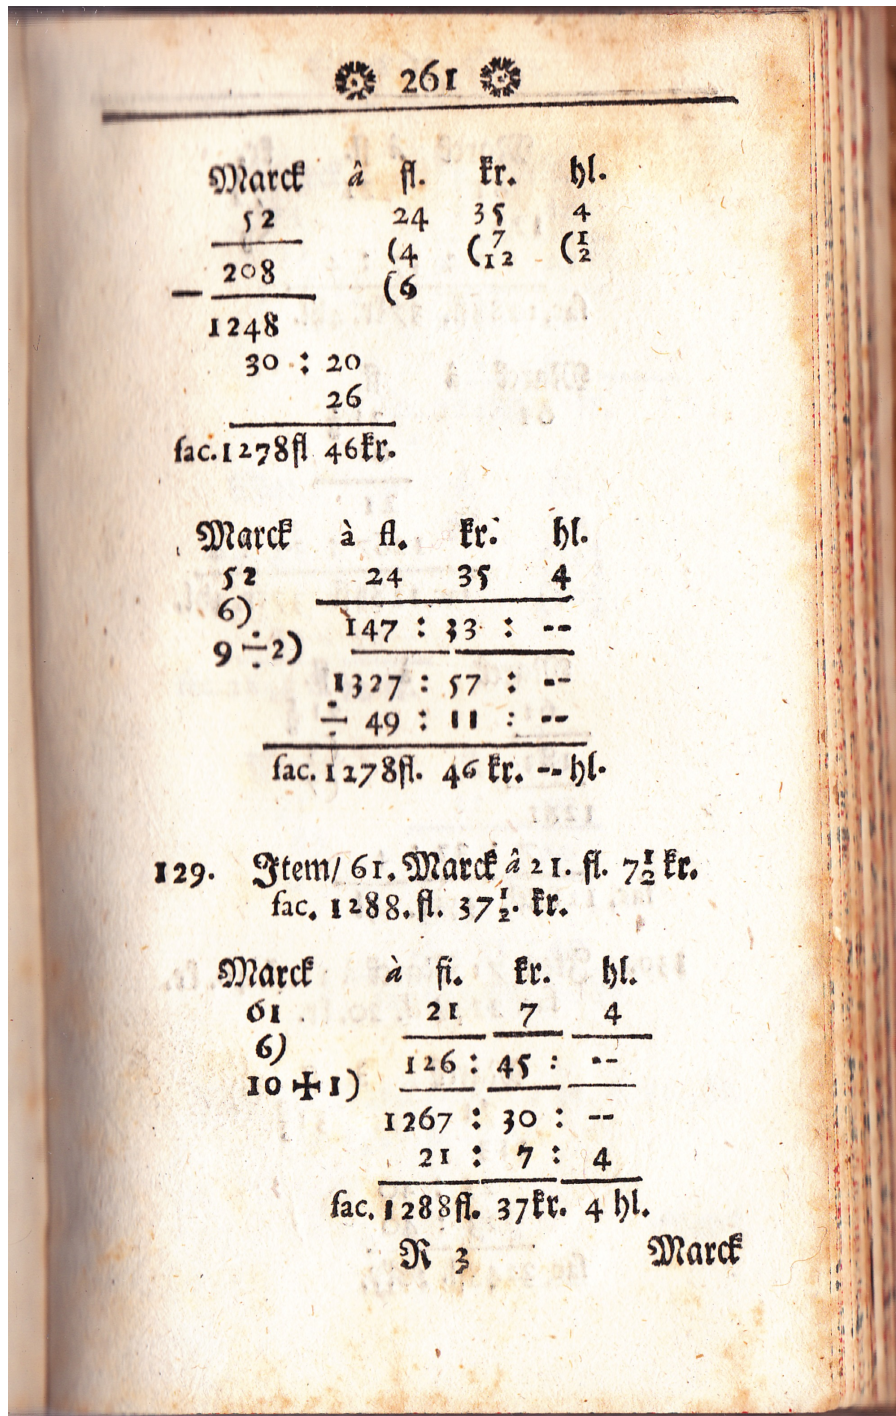 261
Marck â fl. kr. hl.
52 24 35 4
(4 (7/12 (1/2
— 208 (6
1248
30 : 20
26
fac. 1278fl 46kr.
Marck à fl. kr. hl.
52 24 35 4
6)
147 : 33 : --
9 ÷ 2)
1327 : 57 : --
÷ 49 : 11 : --
fac. 1278fl. 46 kr. -- hl.
129. Item/ 61. Marck â 21. fl. 7 1/2 kr.
fac. 1288. fl. 37 1/2. kr.
Marck à fi. kr. hl.
61 21 7 4
6)
126 : 45 : --
10 ✠ 1)
1267 : 30 : --
21 : 7 : 4
fac. 1288fl. 37kr. 4 hl.
R 3 Marck